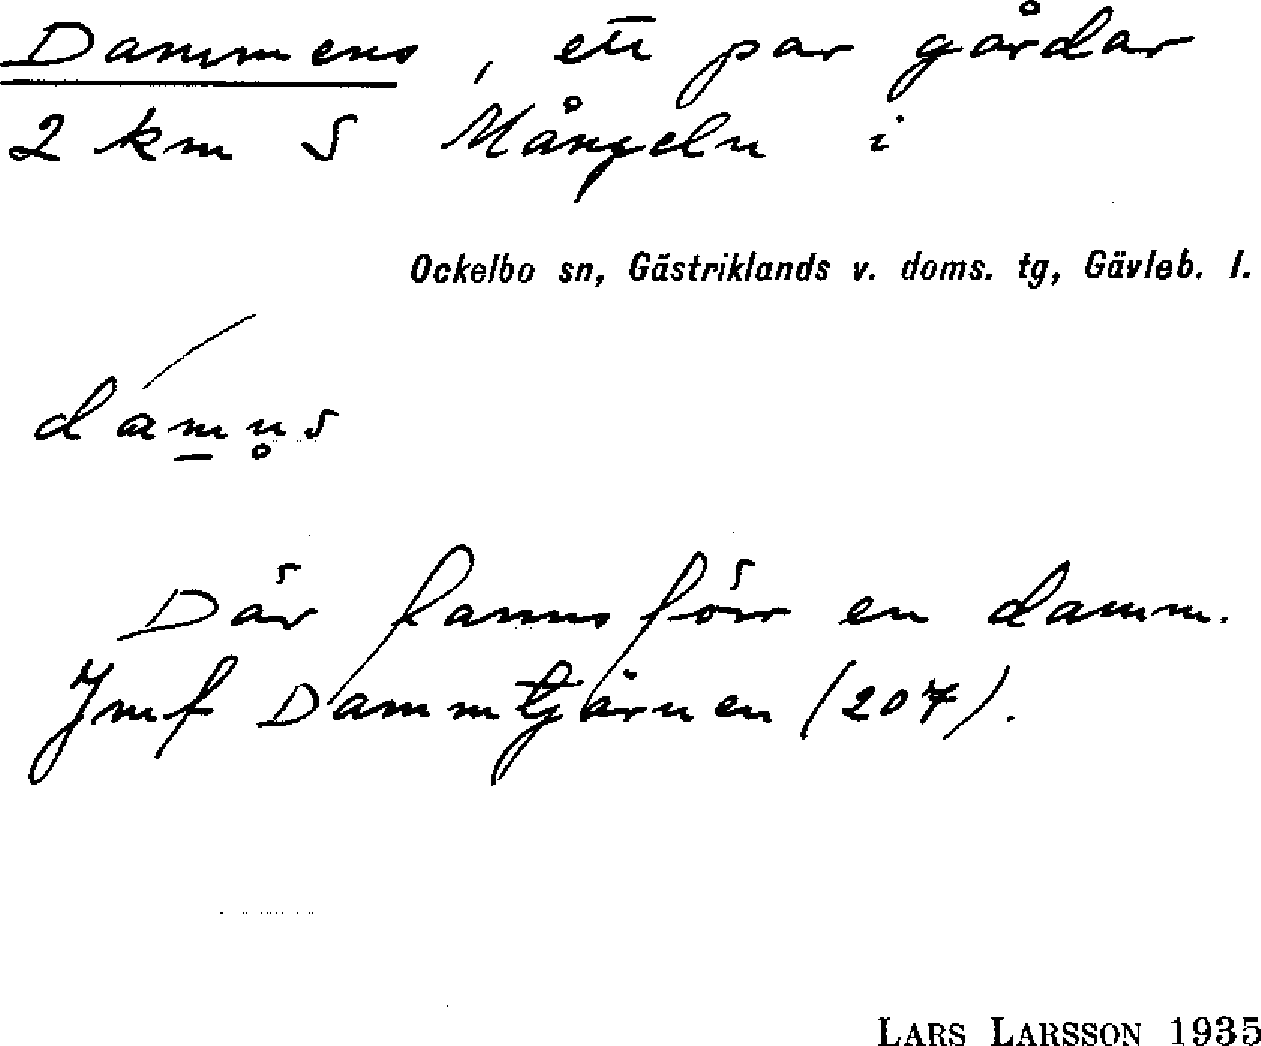 Dammens, ett par gårdar
2 km S Mångeln i
Ockelbo sn, Gästriklands v. doms. tg, Gävleb. l.
dám̲n̥s
Där fanns förr en damm.
Jmf Dammtjärnen (207).
LARS LARSSON 1935